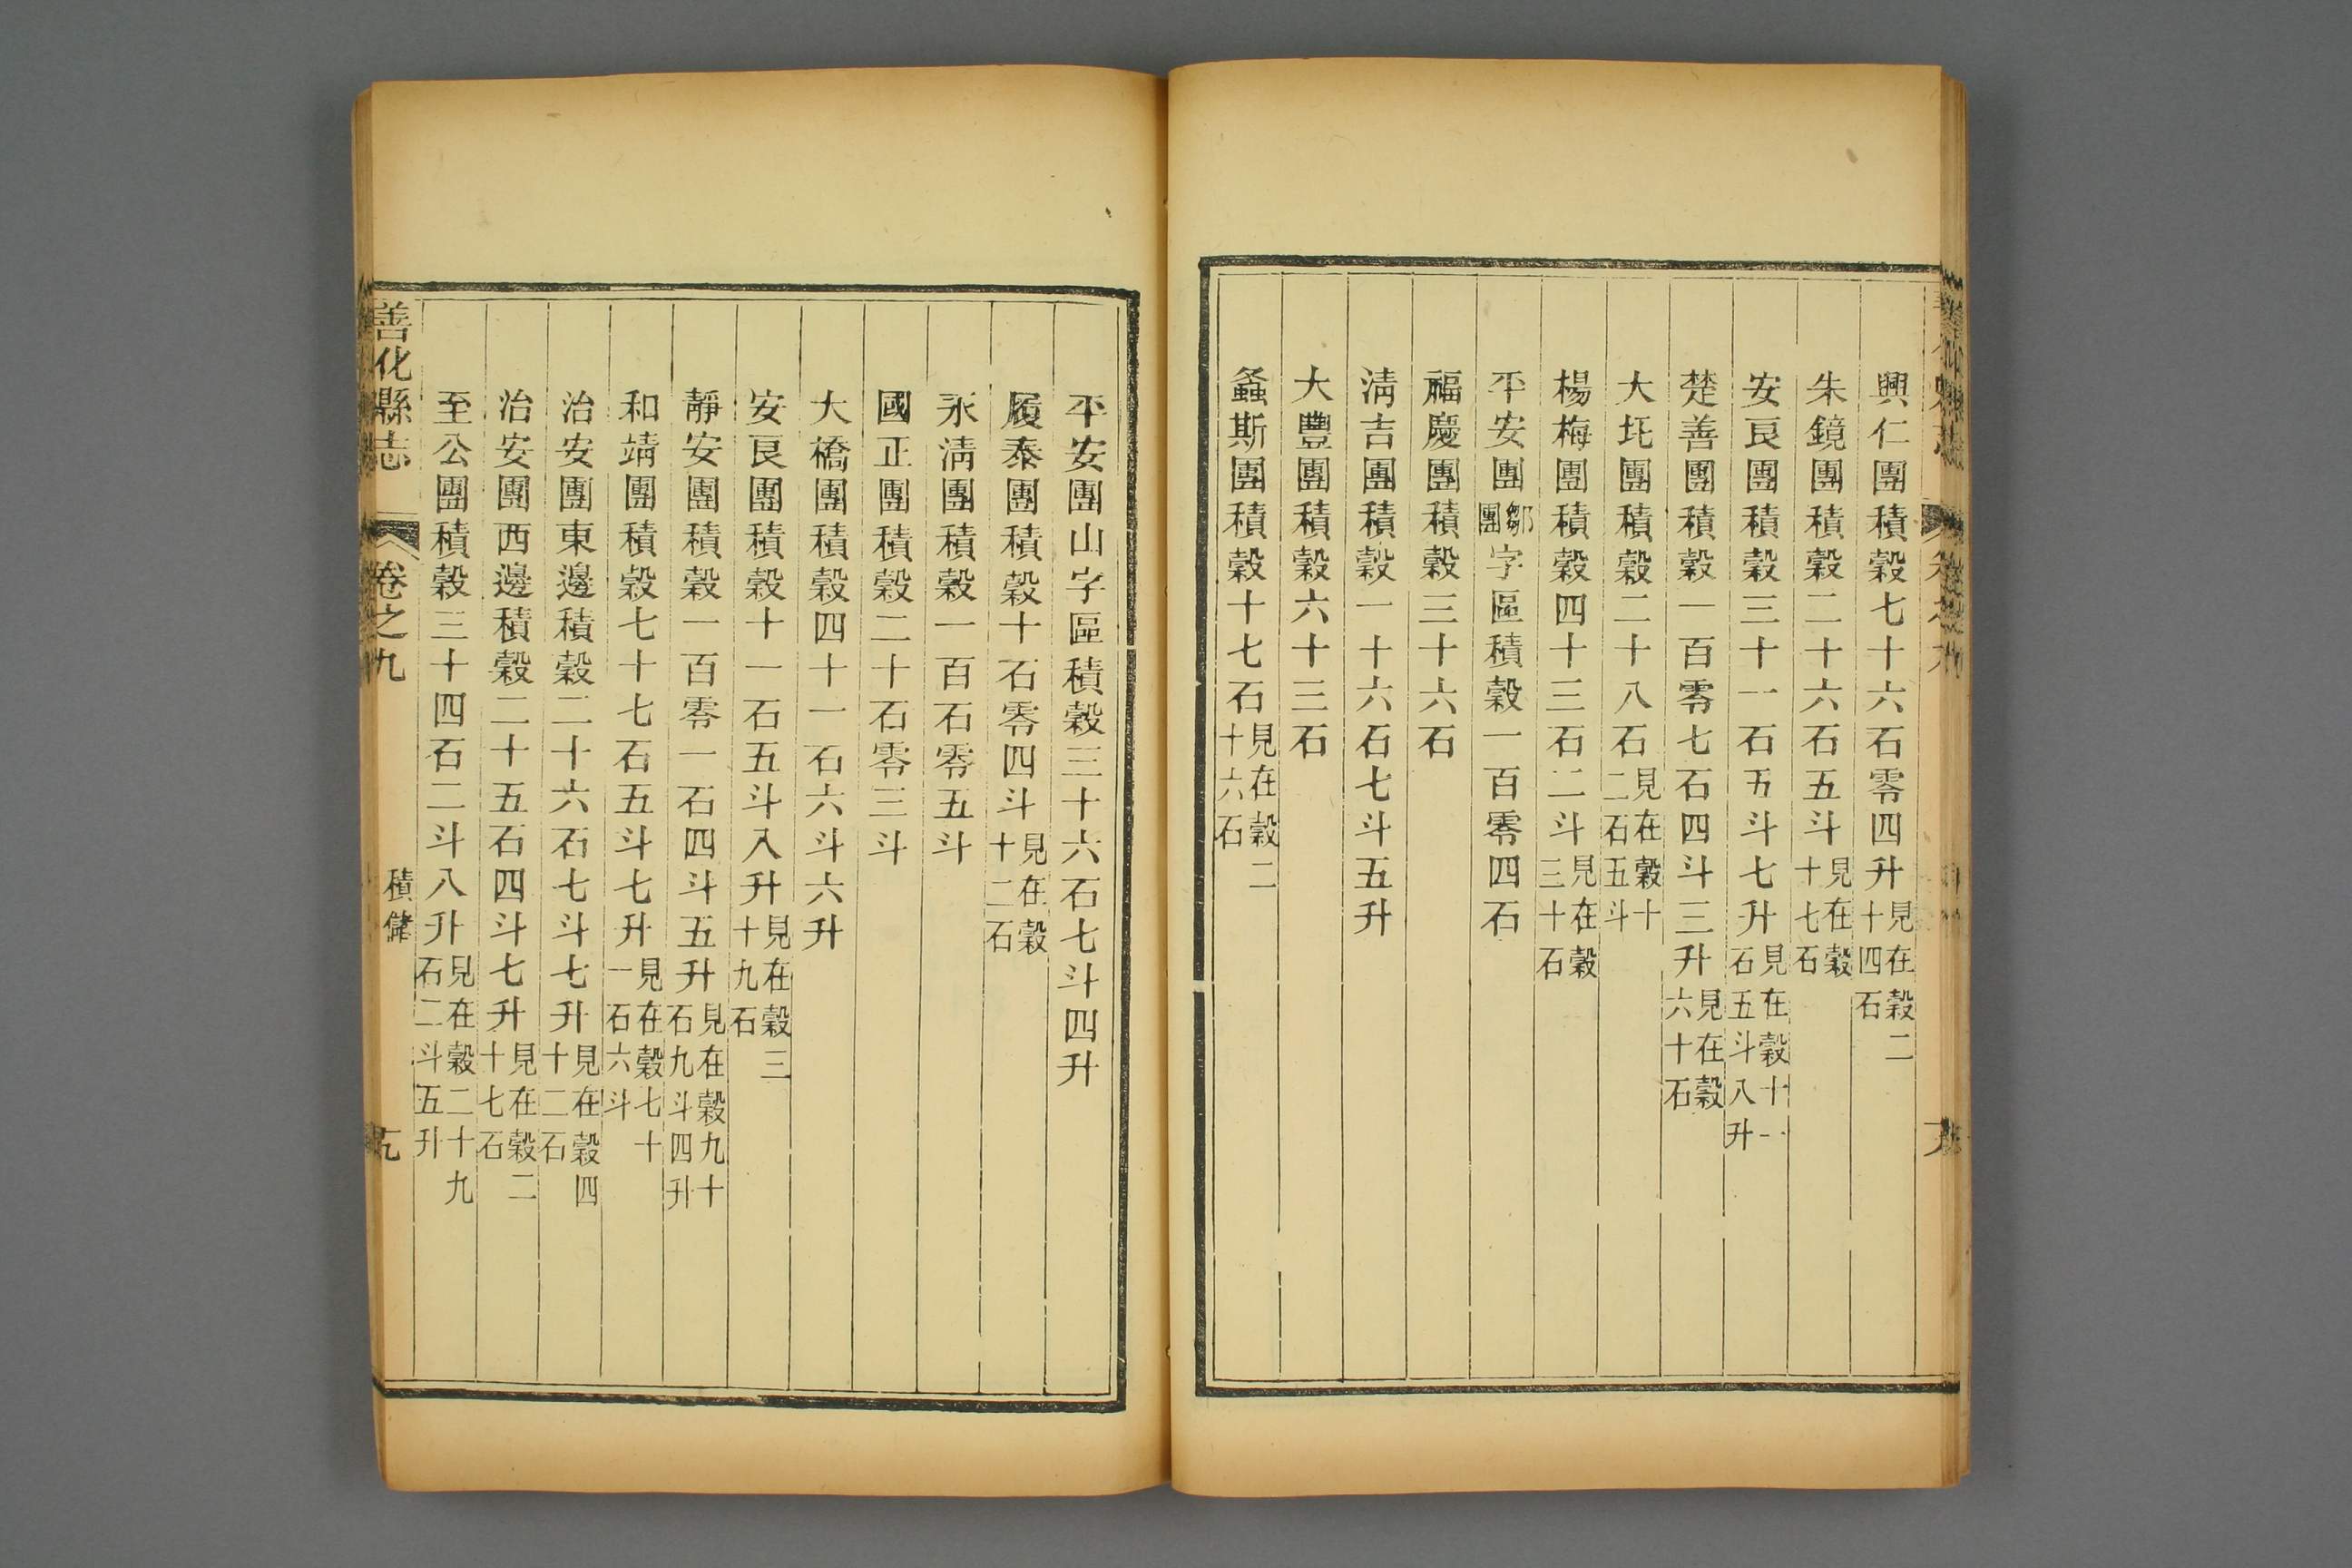 興仁團積穀七十六石零四升見在穀二十四石
朱鏡團積穀二十六石五斗見在穀十七石
安良團積穀三十一石五斗七升見在穀十一石五斗八升
楚善團積穀一百零七石四斗三升見在穀六十石
大圫團積穀二十八石見在穀十二石五斗
楊梅團積穀四十三石二斗見在穀三十石
平安團鄒團字區積穀一百零四石
福慶團積穀三十六石
淸吉團積穀一十六石七斗五升
大豐團積穀六十三石
螽斯團積穀十七石見在穀二十六石
平安團山字區積穀三十六石七斗四升
履泰團積穀十石零四斗見在穀十二石
永淸團積穀一百石零五斗
國正團積穀二十石零三斗
大橋團積穀四十一石六斗六升
安良團積穀十一石五斗八升見在穀三十九石
靜安團積穀一百零一石四斗五升見在穀九十石九斗四升
和靖團積穀七十七石五斗七升見在穀七十一石六斗
治安團東邊積穀二十六石七斗七升見在穀四十二石
治安團西邊積穀二十五石四斗七升見在穀二十七石
至公團積穀三十四石二斗八升見在穀二十九石二斗五升
善化縣志 卷之九 積儲